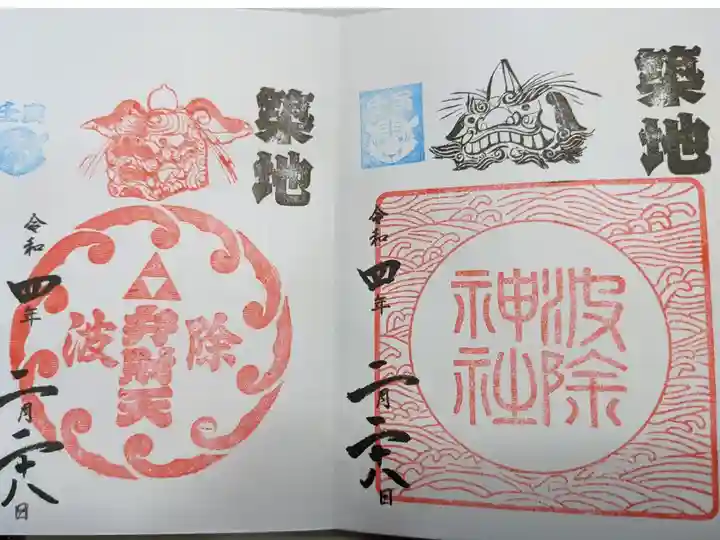 築地
波除
神社
令和四年
二月二十八日
築地
波除
弁財天
令和四年
二月二十八日